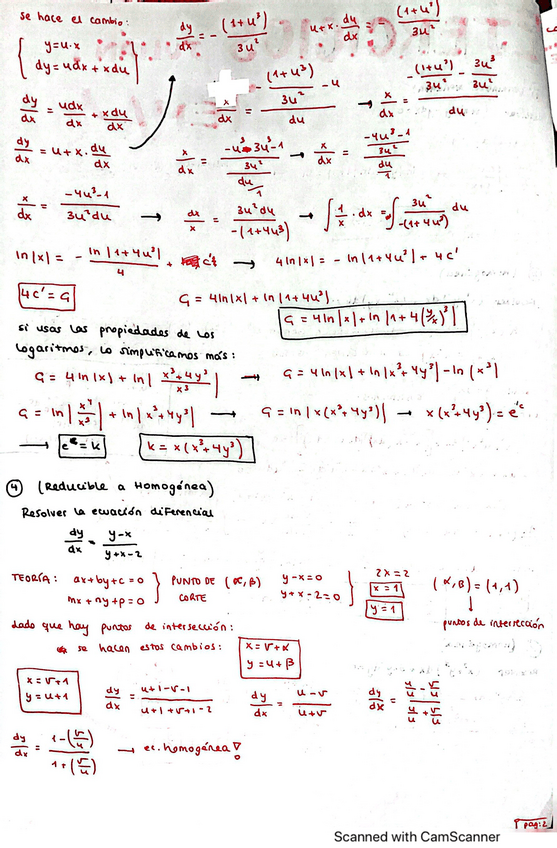 se hace el cambio:
y=u·x
dy=udx+xdu
dy/dx = -(1+u³)/3u²
u+x·du/dx = (1+u³)/3u²
dy/dx = udx/dx + xdu/dx
x/dx = (-(1+u³)/3u² - u)/du → x/dx = (-(1+u³)/3u² - 3u³/3u²)/du
dy/dx = u+x·du/dx
x/dx = ((-u³-3u³-1)/3u²)/(du/1) → x/dx = ((-4u³-1)/3u²)/(du/1)
x/dx = (-4u³-1)/3u²du → dx/x = 3u²du/-(1+4u³) → ∫ 1/x · dx = ∫ 3u²/-(1+4u³) du
ln|x| = - ln|1+4u³|/4 + c' → 4ln|x| = - ln|1+4u³| + 4c'
4c' = G
G = 4ln|x| + ln|1+4u³|
G = 4ln|x| + ln|1+4(y/x)³|
si usas las propiedades de los
logaritmos, lo simplificamos más:
G = 4ln|x| + ln|(x³+4y³)/x³| → G = 4ln|x| + ln|x³+4y³| - ln(x³)
G = ln|x⁴/x³| + ln|x³+4y³| → G = ln|x(x³+4y³)| → x(x³+4y³) = e^c
→ e^c = k
k = x(x³+4y³)
4 (Reducible a Homogénea)
Resolver la ecuación diferencial
dy/dx = (y-x)/(y+x-2)
TEORÍA: ax+by+c=0
mx+ny+p=0
PUNTO DE CORTE (α,β)
y-x=0
y+x-2=0
2x=2
x=1
y=1
(α,β)=(1,1)
↓
puntos de intersección
dado que hay puntos de intersección:
se hacen estos cambios:
x=v+α
y=u+β
x=v+1
y=u+1
dy/dx = (u+1-v-1)/(u+1+v+1-2)
dy/dx = (u-v)/(u+v)
dy/dx = (u/u - v/u)/(u/u + v/u)
dy/dx = (1-(v/u))/(1+(v/u)) → ec. homogénea!
pág:2
Scanned with CamScanner